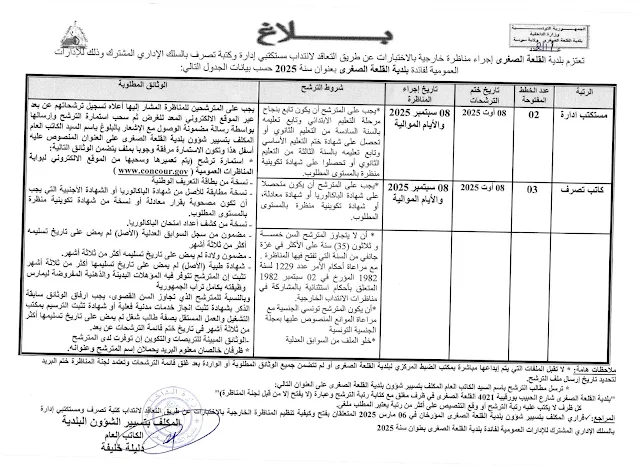 الجمهورية التونسية
وزارة الداخلية
بلدية القلعة الصغرى
بـــلاغ
تعتزم بلدية القلعة الصغرى إجراء مناظرة خارجية بالاختبارات عن طريق التعاقد لانتداب مستكتبي إدارة وكتبة تصرف بالسلك الإداري المشترك وذلك للإدارات
العمومية لفائدة بلدية القلعة الصغرى بعنوان سنة 2025 حسب بيانات الجدول التالي:
الرتبة
عدد الخطط المفتوحة
تاريخ ختم الترشحات
تاريخ إجراء المناظرة
شروط الترشح
الوثائق المطلوبة
مستكتب ادارة
02
08 أوت 2025
08 سبتمبر 2025
والأيام الموالية
*يجب على المترشح أن يكون تابع بنجاح
مرحلة التعليم الابتدائي وتابع تعليمه
بالسنة السادسة من التعليم الثانوي أو
تحصل على شهادة ختم التعليم الأساسي
وتابع تعليمه بالسنة الثالثة من التعليم
الثانوي أو تحصلوا على شهادة تكوينية
منظرة بالمستوى المطلوب.
كاتب تصرف
03
08 أوت 2025
08 سبتمبر 2025
والأيام الموالية
*يجب على المترشح أن يكون متحصلا
على شهادة الباكالوريا أو شهادة معادلة،
أو شهادة تكوينية منظرة بالمستوى
المطلوب.
* أن لا يتجاوز المترشح السن خمسة
وثلاثون (35) سنة على الأكثر في غرة
جانفي من السنة التي تفتح فيها المناظرة.
مع مراعاة أحكام الأمر عدد 1229 لسنة
1982 المؤرخ في 02 سبتمبر 1982
المتعلق بأحكام استثنائية بالمشاركة في
مناظرات الانتداب الخارجية.
*أن يكون المترشح تونسي الجنسية مع
مراعاة الموانع المنصوص عليها بمجلة
الجنسية التونسية
*خلو الملف من السوابق العدلية
يجب على المترشحين للمناظرة المشار إليها أعلاه تسجيل ترشحاتهم عن بعد
عبر الموقع الالكتروني المعد للغرض ثم سحب استمارة الترشح وإرسالها
بواسطة رسالة مضمونة الوصول مع الإشعار بالبلوغ باسم السيد الكاتب العام
المكلف بتسيير شؤون بلدية القلعة الصغرى على العنوان المنصوص عليه
أسفل هذا وتكون الاستمارة مرفقة وجوبا بملف يتضمن الوثائق التالية:
* استمارة ترشح (يتم تعميرها وسحبها من الموقع الالكتروني لبوابة
المناظرات العمومية (www.concour.gov)
- نسخة من بطاقة التعريف الوطنية
- نسخة مطابقة للأصل من شهادة الباكالوريا أو الشهادة الأجنبية التي يجب
أن تكون مصحوبة بقرار معادلة أو نسخة من شهادة تكوينية منظرة
بالمستوى المطلوب.
- نسخة من كشف أعداد امتحان الباكالوريا.
- مضمون من سجل السوابق العدلية (الأصل) لم يمض على تاريخ تسليمه
أكثر من ثلاثة أشهر
- مضمون ولادة لم يمض على تاريخ تسليمه أكثر من ثلاثة أشهر.
- شهادة طبية (الأصل) لم يمض على تاريخ تسليمها أكثر من ثلاثة أشهر
تثبت إن المترشح تتوفر فيه المؤهلات البدنية والذهنية المفروضة ليمارس
وظيفته بكامل تراب الجمهورية
وبالنسبة للمترشح الذي تجاوز السن القصوى، يجب ارفاق الوثائق سابقة
الذكر بشهادة تثبت انجاز خدمات مدنية فعلية أو شهادة تثبت الترسيم بمكتب
التشغيل والعمل المستقل بصفة طالب شغل لم يمض على تاريخ تسليمها أكثر
من ثلاثة أشهر في تاريخ ختم قائمة الترشحات عن بعد.
-الوثائق المبينة للتربصات والتكوين إن توفرت لدى المترشح
* ظرفان خالصان معلوم البريد يحملان إسم المترشح وعنوانه.
ملاحظات هامة: * لا تقبل الملفات التي يتم إيداعها مباشرة بمكتب الضبط المركزي لبلدية القلعة الصغرى أو لم تتضمن جميع الوثائق المطلوبة أو الواردة بعد غلق قائمة الترشحات وتعتمد لجنة المناظرة ختم البريد
لتحديد تاريخ إرسال ملف الترشح.
* ترسل مطالب الترشح باسم السيد الكاتب العام المكلف بتسيير شؤون بلدية القلعة الصغرى على العنوان التالي:
"بلدية القلعة الصغرى شارع الحبيب بورقيبة 4021 القلعة الصغرى في ظرف مغلق مع كتابة رتبة الترشح وعبارة (لا يفتح إلا من قبل لجنة المناظرة)"
كل ظرف لا يكتب عليه رتبة الترشح أو وقع التنصيص على أكثر من رتبة يعتبر المطلب ملغى.
المراجع: *قراري المكلف بتسيير شؤون بلدية القلعة الصغرى المؤرخان في 06 مارس 2025 المتعلقان بفتح وكيفية تنظيم المناظرة الخارجية بالاختبارات عن طريق التعاقد لانتداب كتبة تصرف ومستكتبي إدارة
بالسلك الإداري المشترك للإدارات العمومية لفائدة بلدية القلعة الصغرى بعنوان سنة 2025
المكلف بتسيير الشؤون البلدية
الكاتب العام
دليلة خليفة